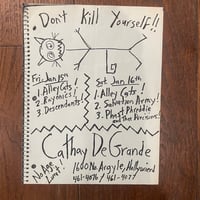 Don't Kill Yourself!!
Fri. Jan 15th
1. Alley Cats!
2. Rayonics!
3. Descendants!
Sat. Jan 16th
1. Alley Cats!
2. Salvation Army!
3. Phast Phreddie
and Thee Precisions!
No Age Limit!
Cathay DeGrande
1600 No. Argyle, Hollywood
461-4076 / 461-4077